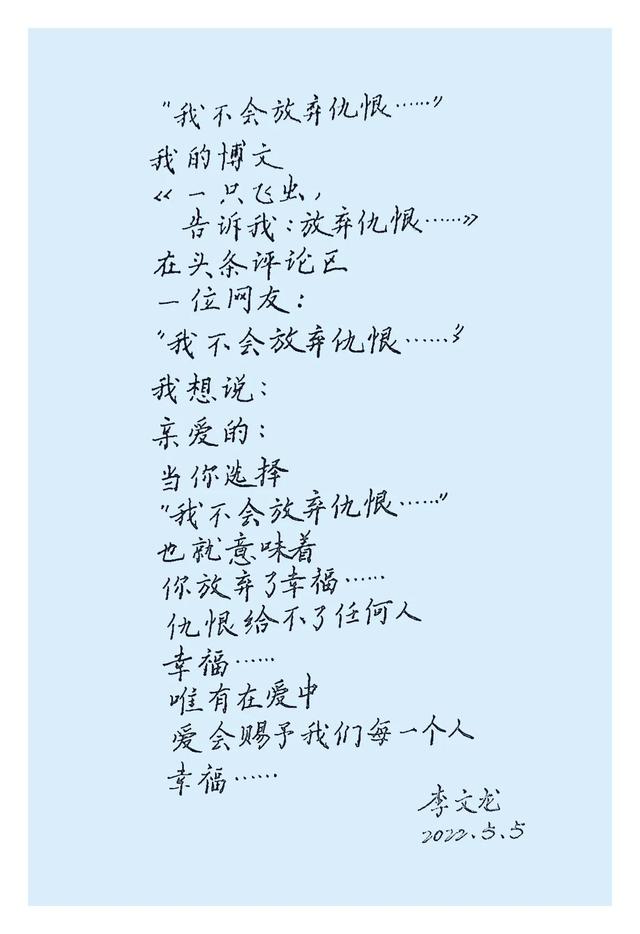 “我不会放弃仇恨……”
我的博文
《一只飞虫，
告诉我：放弃仇恨……》
在头条评论区
一位网友：
“我不会放弃仇恨……”
我想说：
亲爱的：
当你选择
“我不会放弃仇恨……”
也就意味着
你放弃了幸福……
仇恨给不了任何人
幸福……
唯有在爱中
爱会赐予我们每一个人
幸福……
李文龙
2022.5.5